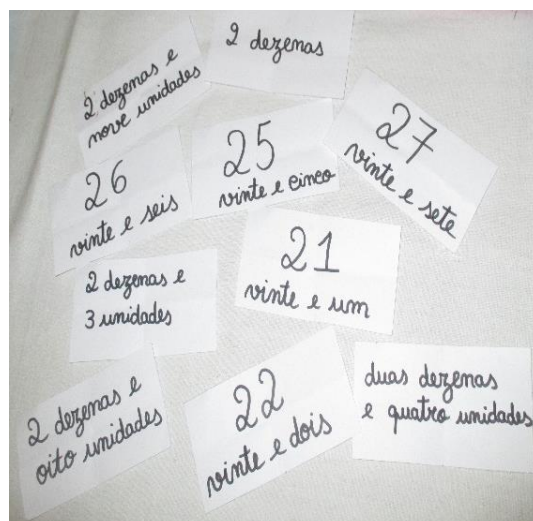 2 dezenas e
nove unidades
2 dezenas
26
vinte e seis
25
vinte e cinco
27
vinte e sete
2 dezenas e
3 unidades
21
vinte e um
2 dezenas e
oito unidades
22
vinte e dois
duas dezenas
e quatro unidades